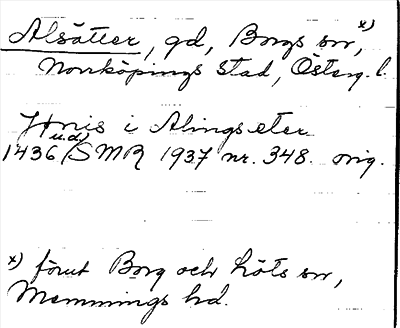 Alsätter, gd, Borgs sn, x)
Norrköpings stad, Österg. l.
Jönis i Alingseter
1436 (u.d.) SMR 1937 nr. 348. orig.
x) förut Borg och Löts sn,
Memmings hd.